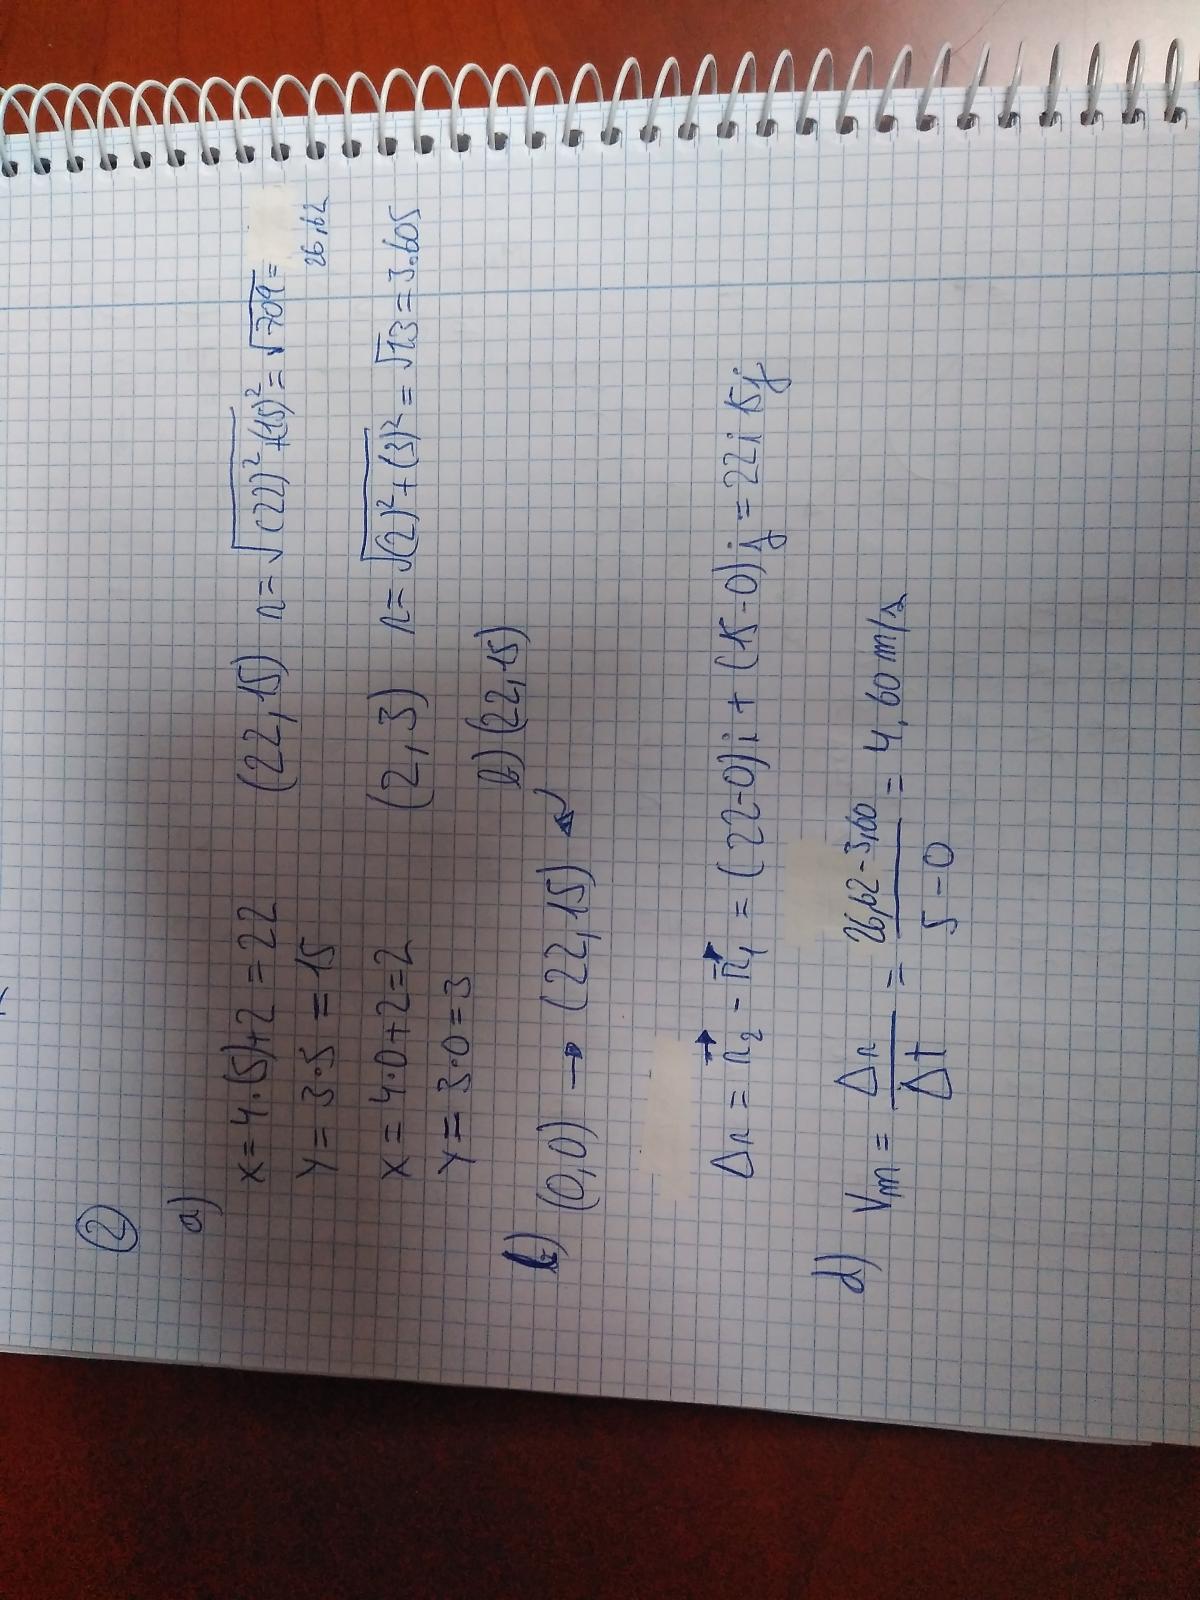 ②
a)
x = 4·(5)+2 = 22 (22, 15) r = √(22)² + (15)² = √709 =
26,62
y = 3·5 = 15
x = 4·0+2 = 2 (2, 3) r = √(2)² + (3)² = √13 = 3.605
y = 3·0 = 3
b) (22, 15)
b) (0,0) → (22, 15)
Δr = r₂ - r₁ = (22-0)i + (15-0)j = 22i 15j
d) Vm = Δr/Δt = 26,62 - 3,60/5 - 0 = 4,60 m/s